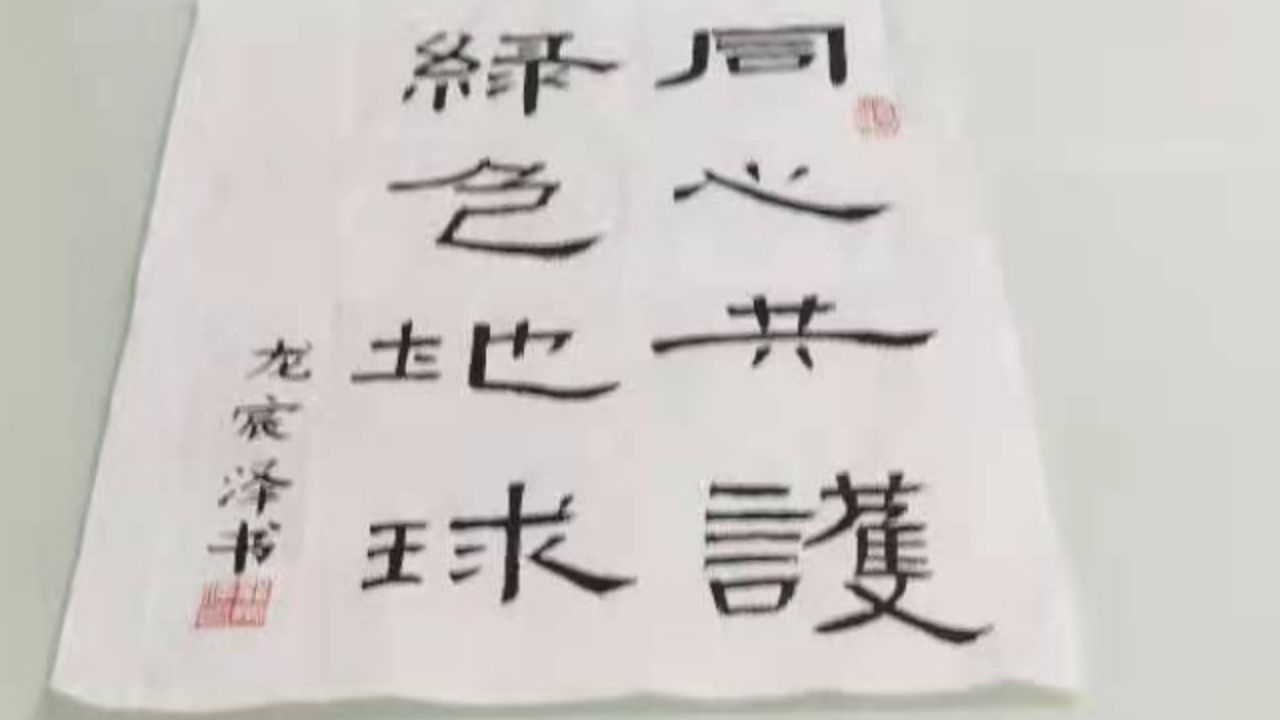 同心共護
緑色地球
龙宸泽书